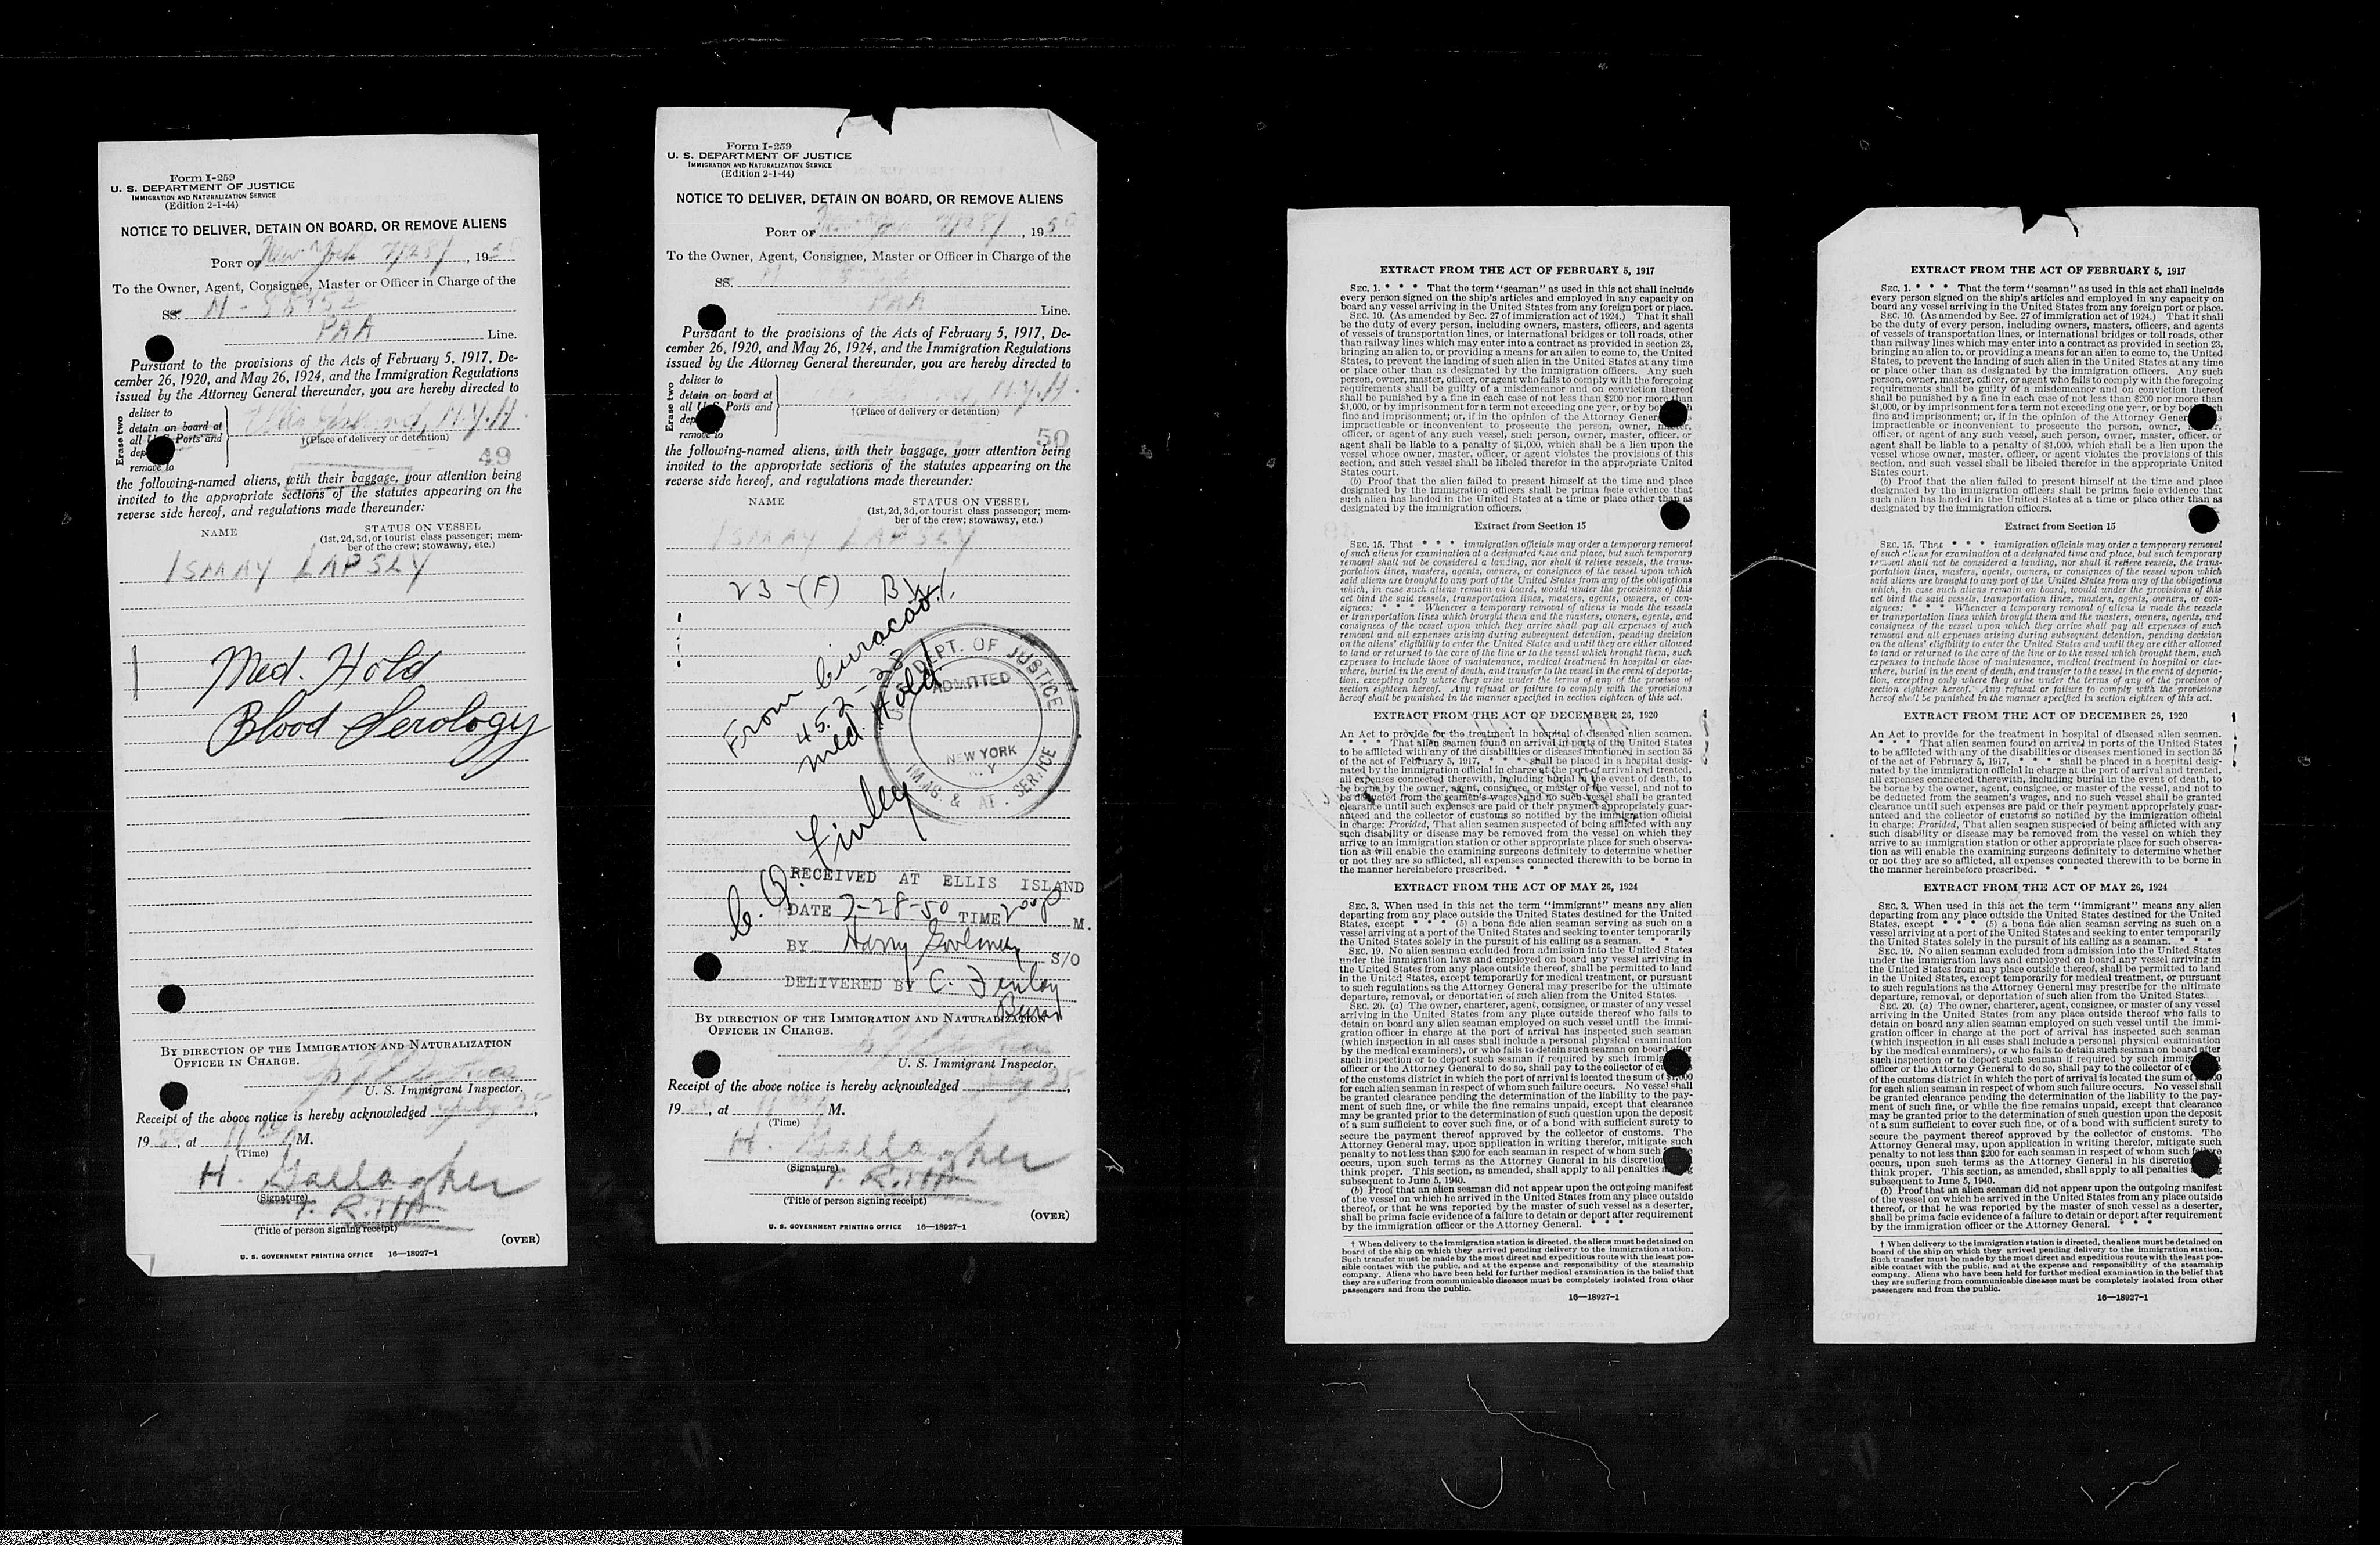 Form I-259
U. S. DEPARTMENT OF JUSTICE
IMMIGRATION AND NATURALIZATION SERVICE
(Edition 2-1-44)
NOTICE TO DELIVER, DETAIN ON BOARD, OR REMOVE ALIENS
PORT OF New York 7/28/, 1950
To the Owner, Agent, Consignee, Master or Officer in Charge of the
SS. N-88952
PAA Line.
Pursuant to the provisions of the Acts of February 5, 1917, De-
cember 26, 1920, and May 26, 1924, and the Immigration Regulations
issued by the Attorney General thereunder, you are hereby directed to
Erase two
deliver to
detain on board at
all U.S. Ports and
remove to
Ellis Island, N.Y.H.
†(Place of delivery or detention)
49
the following-named aliens, with their baggage, your attention being
invited to the appropriate sections of the statutes appearing on the
reverse side hereof, and regulations made thereunder:
NAME STATUS ON VESSEL
(1st, 2d, 3d, or tourist class passenger; mem-
ber of the crew; stowaway, etc.)
ISMAY LAPSLY
Med. Hold
Blood Serology
BY DIRECTION OF THE IMMIGRATION AND NATURALIZATION
OFFICER IN CHARGE.
U. S. Immigrant Inspector.
Receipt of the above notice is hereby acknowledged July 28,
19 , at M.
(Time)
H. Gallagher
(Signature)
(Title of person signing receipt)
(OVER)
U. S. GOVERNMENT PRINTING OFFICE 16—18927-1
Form I-259
U. S. DEPARTMENT OF JUSTICE
IMMIGRATION AND NATURALIZATION SERVICE
(Edition 2-1-44)
NOTICE TO DELIVER, DETAIN ON BOARD, OR REMOVE ALIENS
PORT OF New York 7/28/, 1950
To the Owner, Agent, Consignee, Master or Officer in Charge of the
SS. N
PAA Line.
Pursuant to the provisions of the Acts of February 5, 1917, De-
cember 26, 1920, and May 26, 1924, and the Immigration Regulations
issued by the Attorney General thereunder, you are hereby directed to
Erase two
deliver to
detain on board at
all U.S. Ports and
remove to
N.Y.H.
†(Place of delivery or detention)
50
the following-named aliens, with their baggage, your attention being
invited to the appropriate sections of the statutes appearing on the
reverse side hereof, and regulations made thereunder:
NAME STATUS ON VESSEL
(1st, 2d, 3d, or tourist class passenger; mem-
ber of the crew; stowaway, etc.)
ISMAY LAPSLY
23-(F) BWI.
From Curacao
Med Hold
DEPT. OF JUSTICE
ADMITTED
NEW YORK
N. Y.
SERVICE
C. Q. Finley
RECEIVED AT ELLIS ISLAND
DATE 7-28-50 TIME 200P M.
BY Harry S/O
DELIVERED BY C. Finley
BY DIRECTION OF THE IMMIGRATION AND NATURALIZATION
OFFICER IN CHARGE.
U. S. Immigrant Inspector.
Receipt of the above notice is hereby acknowledged July 28,
19 , at M.
(Time)
H. Gallagher
(Signature)
(Title of person signing receipt)
(OVER)
U. S. GOVERNMENT PRINTING OFFICE 16—18927-1
EXTRACT FROM THE ACT OF FEBRUARY 5, 1917
SEC. 1. * * * That the term "seaman" as used in this act shall include
every person signed on the ship's articles and employed in any capacity on
board any vessel arriving in the United States from any foreign port or place.
SEC. 10. (As amended by Sec. 27 of immigration act of 1924.) That it shall
be the duty of every person, including owners, masters, officers, and agents
of vessels of transportation lines, or international bridges or toll roads, other
than railway lines which may enter into a contract as provided in section 23,
bringing an alien to, or providing a means for an alien to come to, the United
States, to prevent the landing of such alien in the United States at any time
or place other than as designated by the immigration officers. Any such
person, owner, master, officer, or agent who fails to comply with the foregoing
requirements shall be guilty of a misdemeanor and on conviction thereof
shall be punished by a fine in each case of not less than $200 nor more than
$1,000, or by imprisonment for a term not exceeding one year, or by both such
fine and imprisonment; or, if in the opinion of the Attorney General, it is
impracticable or inconvenient to prosecute the person, owner, master,
officer, or agent of any such vessel, such person, owner, master, officer, or
agent shall be liable to a penalty of $1,000, which shall be a lien upon the
vessel whose owner, master, officer, or agent violates the provisions of this
section, and such vessel shall be libeled therefor in the appropriate United
States court.
(b) Proof that the alien failed to present himself at the time and place
designated by the immigration officers shall be prima facie evidence that
such alien has landed in the United States at a time or place other than as
designated by the immigration officers.
Extract from Section 15
SEC. 15. That * * * immigration officials may order a temporary removal
of such aliens for examination at a designated time and place, but such temporary
removal shall not be considered a landing, nor shall it relieve vessels, the trans-
portation lines, masters, agents, owners, or consignees of the vessel upon which
said aliens are brought to any port of the United States from any of the obligations
which, in case such aliens remain on board, would under the provisions of this
act bind the said vessels, transportation lines, masters, agents, owners, or con-
signees: * * * Whenever a temporary removal of aliens is made the vessels
or transportation lines which brought them and the masters, owners, agents, and
consignees of the vessel upon which they arrive shall pay all expenses of such
removal and all expenses arising during subsequent detention, pending decision
on the aliens' eligibility to enter the United States and until they are either allowed
to land or returned to the care of the line or to the vessel which brought them, such
expenses to include those of maintenance, medical treatment in hospital or else-
where, burial in the event of death, and transfer to the vessel in the event of deporta-
tion, excepting only where they arise under the terms of any of the provisos of
section eighteen hereof. Any refusal or failure to comply with the provisions
hereof shall be punished in the manner specified in section eighteen of this act.
EXTRACT FROM THE ACT OF DECEMBER 26, 1920
An Act to provide for the treatment in hospital of diseased alien seamen.
* * * That alien seamen found on arrival in ports of the United States
to be afflicted with any of the disabilities or diseases mentioned in section 35
of the act of February 5, 1917, * * * shall be placed in a hospital desig-
nated by the immigration official in charge at the port of arrival and treated,
all expenses connected therewith, including burial in the event of death, to
be borne by the owner, agent, consignee, or master of the vessel, and not to
be deducted from the seamen's wages, and no such vessel shall be granted
clearance until such expenses are paid or their payment appropriately guar-
anteed and the collector of customs so notified by the immigration official
in charge: Provided, That alien seamen suspected of being afflicted with any
such disability or disease may be removed from the vessel on which they
arrive to an immigration station or other appropriate place for such observa-
tion as will enable the examining surgeons definitely to determine whether
or not they are so afflicted, all expenses connected therewith to be borne in
the manner hereinbefore prescribed. * * *
EXTRACT FROM THE ACT OF MAY 26, 1924
SEC. 3. When used in this act the term "immigrant" means any alien
departing from any place outside the United States destined for the United
States, except * * * (5) a bona fide alien seaman serving as such on a
vessel arriving at a port of the United States and seeking to enter temporarily
the United States solely in the pursuit of his calling as a seaman. * * *
SEC. 19. No alien seaman excluded from admission into the United States
under the immigration laws and employed on board any vessel arriving in
the United States from any place outside thereof, shall be permitted to land
in the United States, except temporarily for medical treatment, or pursuant
to such regulations as the Attorney General may prescribe for the ultimate
departure, removal, or deportation of such alien from the United States.
SEC. 20. (a) The owner, charterer, agent, consignee, or master of any vessel
arriving in the United States from any place outside thereof who fails to
detain on board any alien seaman employed on such vessel until the immi-
gration officer in charge at the port of arrival has inspected such seaman
(which inspection in all cases shall include a personal physical examination
by the medical examiners), or who fails to detain such seaman on board after
such inspection or to deport such seaman if required by such immigration
officer or the Attorney General to do so, shall pay to the collector of customs
of the customs district in which the port of arrival is located the sum of $1,000
for each alien seaman in respect of whom such failure occurs. No vessel shall
be granted clearance pending the determination of the liability to the pay-
ment of such fine, or while the fine remains unpaid, except that clearance
may be granted prior to the determination of such question upon the deposit
of a sum sufficient to cover such fine, or of a bond with sufficient surety to
secure the payment thereof approved by the collector of customs. The
Attorney General may, upon application in writing therefor, mitigate such
penalty to not less than $200 for each seaman in respect of whom such failure
occurs, upon such terms as the Attorney General in his discretion shall
think proper. This section, as amended, shall apply to all penalties
subsequent to June 5, 1940.
(b) Proof that an alien seaman did not appear upon the outgoing manifest
of the vessel on which he arrived in the United States from any place outside
thereof, or that he was reported by the master of such vessel as a deserter,
shall be prima facie evidence of a failure to detain or deport after requirement
by the immigration officer or the Attorney General. * * *
† When delivery to the immigration station is directed, the aliens must be detained on
board of the ship on which they arrived pending delivery to the immigration station.
Such transfer must be made by the most direct and expeditious route with the least pos-
sible contact with the public, and at the expense and responsibility of the steamship
company. Aliens who have been held for further medical examination in the belief that
they are suffering from communicable diseases must be completely isolated from other
passengers and from the public.
16—18927-1
EXTRACT FROM THE ACT OF FEBRUARY 5, 1917
SEC. 1. * * * That the term "seaman" as used in this act shall include
every person signed on the ship's articles and employed in any capacity on
board any vessel arriving in the United States from any foreign port or place.
SEC. 10. (As amended by Sec. 27 of immigration act of 1924.) That it shall
be the duty of every person, including owners, masters, officers, and agents
of vessels of transportation lines, or international bridges or toll roads, other
than railway lines which may enter into a contract as provided in section 23,
bringing an alien to, or providing a means for an alien to come to, the United
States, to prevent the landing of such alien in the United States at any time
or place other than as designated by the immigration officers. Any such
person, owner, master, officer, or agent who fails to comply with the foregoing
requirements shall be guilty of a misdemeanor and on conviction thereof
shall be punished by a fine in each case of not less than $200 nor more than
$1,000, or by imprisonment for a term not exceeding one year, or by both such
fine and imprisonment; or, if in the opinion of the Attorney General, it is
impracticable or inconvenient to prosecute the person, owner, master,
officer, or agent of any such vessel, such person, owner, master, officer, or
agent shall be liable to a penalty of $1,000, which shall be a lien upon the
vessel whose owner, master, officer, or agent violates the provisions of this
section, and such vessel shall be libeled therefor in the appropriate United
States court.
(b) Proof that the alien failed to present himself at the time and place
designated by the immigration officers shall be prima facie evidence that
such alien has landed in the United States at a time or place other than as
designated by the immigration officers.
Extract from Section 15
SEC. 15. That * * * immigration officials may order a temporary removal
of such aliens for examination at a designated time and place, but such temporary
removal shall not be considered a landing, nor shall it relieve vessels, the trans-
portation lines, masters, agents, owners, or consignees of the vessel upon which
said aliens are brought to any port of the United States from any of the obligations
which, in case such aliens remain on board, would under the provisions of this
act bind the said vessels, transportation lines, masters, agents, owners, or con-
signees: * * * Whenever a temporary removal of aliens is made the vessels
or transportation lines which brought them and the masters, owners, agents, and
consignees of the vessel upon which they arrive shall pay all expenses of such
removal and all expenses arising during subsequent detention, pending decision
on the aliens' eligibility to enter the United States and until they are either allowed
to land or returned to the care of the line or to the vessel which brought them, such
expenses to include those of maintenance, medical treatment in hospital or else-
where, burial in the event of death, and transfer to the vessel in the event of deporta-
tion, excepting only where they arise under the terms of any of the provisos of
section eighteen hereof. Any refusal or failure to comply with the provisions
hereof shall be punished in the manner specified in section eighteen of this act.
EXTRACT FROM THE ACT OF DECEMBER 26, 1920
An Act to provide for the treatment in hospital of diseased alien seamen.
* * * That alien seamen found on arrival in ports of the United States
to be afflicted with any of the disabilities or diseases mentioned in section 35
of the act of February 5, 1917, * * * shall be placed in a hospital desig-
nated by the immigration official in charge at the port of arrival and treated,
all expenses connected therewith, including burial in the event of death, to
be borne by the owner, agent, consignee, or master of the vessel, and not to
be deducted from the seamen's wages, and no such vessel shall be granted
clearance until such expenses are paid or their payment appropriately guar-
anteed and the collector of customs so notified by the immigration official
in charge: Provided, That alien seamen suspected of being afflicted with any
such disability or disease may be removed from the vessel on which they
arrive to an immigration station or other appropriate place for such observa-
tion as will enable the examining surgeons definitely to determine whether
or not they are so afflicted, all expenses connected therewith to be borne in
the manner hereinbefore prescribed. * * *
EXTRACT FROM THE ACT OF MAY 26, 1924
SEC. 3. When used in this act the term "immigrant" means any alien
departing from any place outside the United States destined for the United
States, except * * * (5) a bona fide alien seaman serving as such on a
vessel arriving at a port of the United States and seeking to enter temporarily
the United States solely in the pursuit of his calling as a seaman. * * *
SEC. 19. No alien seaman excluded from admission into the United States
under the immigration laws and employed on board any vessel arriving in
the United States from any place outside thereof, shall be permitted to land
in the United States, except temporarily for medical treatment, or pursuant
to such regulations as the Attorney General may prescribe for the ultimate
departure, removal, or deportation of such alien from the United States.
SEC. 20. (a) The owner, charterer, agent, consignee, or master of any vessel
arriving in the United States from any place outside thereof who fails to
detain on board any alien seaman employed on such vessel until the immi-
gration officer in charge at the port of arrival has inspected such seaman
(which inspection in all cases shall include a personal physical examination
by the medical examiners), or who fails to detain such seaman on board after
such inspection or to deport such seaman if required by such immigration
officer or the Attorney General to do so, shall pay to the collector of customs
of the customs district in which the port of arrival is located the sum of $1,000
for each alien seaman in respect of whom such failure occurs. No vessel shall
be granted clearance pending the determination of the liability to the pay-
ment of such fine, or while the fine remains unpaid, except that clearance
may be granted prior to the determination of such question upon the deposit
of a sum sufficient to cover such fine, or of a bond with sufficient surety to
secure the payment thereof approved by the collector of customs. The
Attorney General may, upon application in writing therefor, mitigate such
penalty to not less than $200 for each seaman in respect of whom such failure
occurs, upon such terms as the Attorney General in his discretion shall
think proper. This section, as amended, shall apply to all penalties
subsequent to June 5, 1940.
(b) Proof that an alien seaman did not appear upon the outgoing manifest
of the vessel on which he arrived in the United States from any place outside
thereof, or that he was reported by the master of such vessel as a deserter,
shall be prima facie evidence of a failure to detain or deport after requirement
by the immigration officer or the Attorney General. * * *
† When delivery to the immigration station is directed, the aliens must be detained on
board of the ship on which they arrived pending delivery to the immigration station.
Such transfer must be made by the most direct and expeditious route with the least pos-
sible contact with the public, and at the expense and responsibility of the steamship
company. Aliens who have been held for further medical examination in the belief that
they are suffering from communicable diseases must be completely isolated from other
passengers and from the public.
16—18927-1